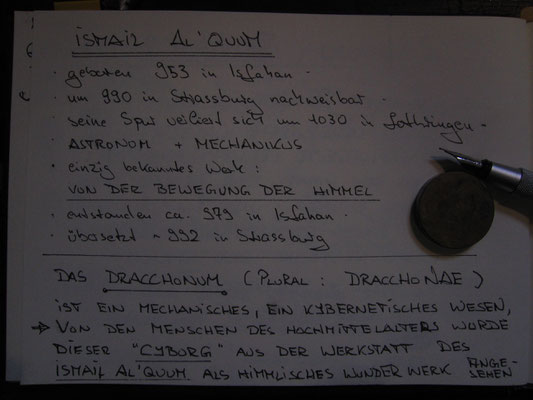 ISMAIL AL'QUUM
· geboren 953 in Isfahan ·
· um 990 in Strassburg nachweisbar ·
· seine Spur verliert sich um 1030 in Lothringen -
· ASTRONOM + MECHANIKUS
· einzig bekanntes Werk :
VON DER BEWEGUNG DER HIMMEL
· entstanden ca. 979 in Isfahan ·
· übersetzt ~ 992 in Strassburg
DAS DRACCHONUM (PLURAL : DRACCHONAE)
IST EIN MECHANISCHES, EIN KYBERNETISCHES WESEN,
→ VON DEN MENSCHEN DES HOCHMITTELALTERS WURDE
DIESER "CYBORG" AUS DER WERKSTATT DES
ISMAIL AL'QUUM ALS HIMMLISCHES WUNDERWERK ANGE-
SEHEN